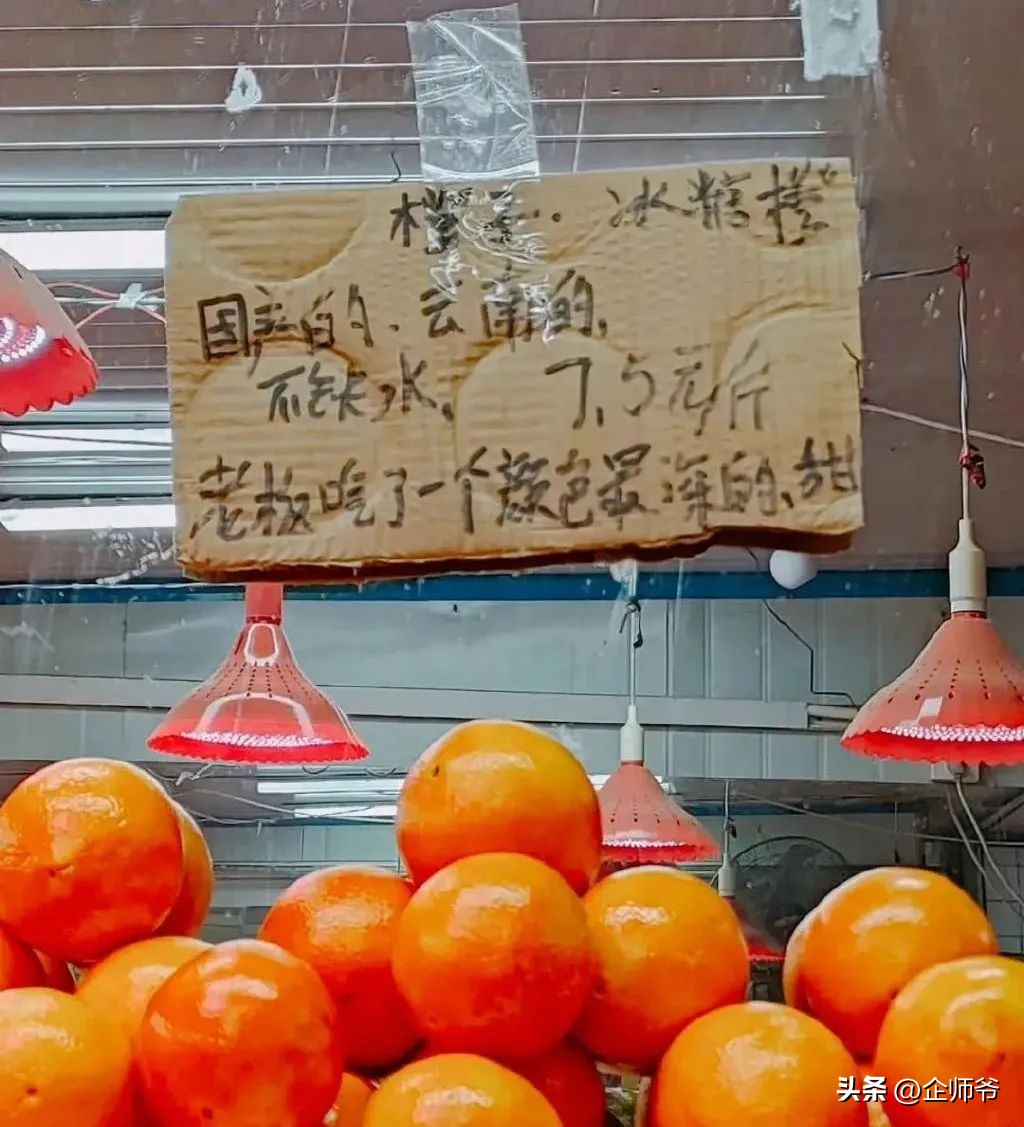 冰糖橙
国产的、云南的,
不缺水, 7.5元/斤
老板吃了一个颜色最深的、甜
头条 @企师爷